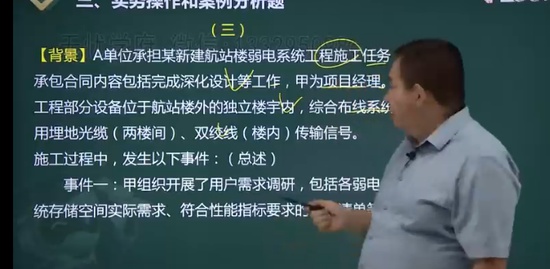 三、实务操作和案例分析题
（三）
【背景】A单位承担某新建航站楼弱电系统工程施工任务
承包合同内容包括完成深化设计等工作，甲为项目经理。
工程部分设备位于航站楼外的独立楼宇内，综合布线系统
用埋地光缆（两楼间）、双绞线（楼内）传输信号。
施工过程中，发生以下事件：（总述）
事件一：甲组织开展了用户需求调研，包括各弱电
统存储空间实际需求、符合性能指标要求的